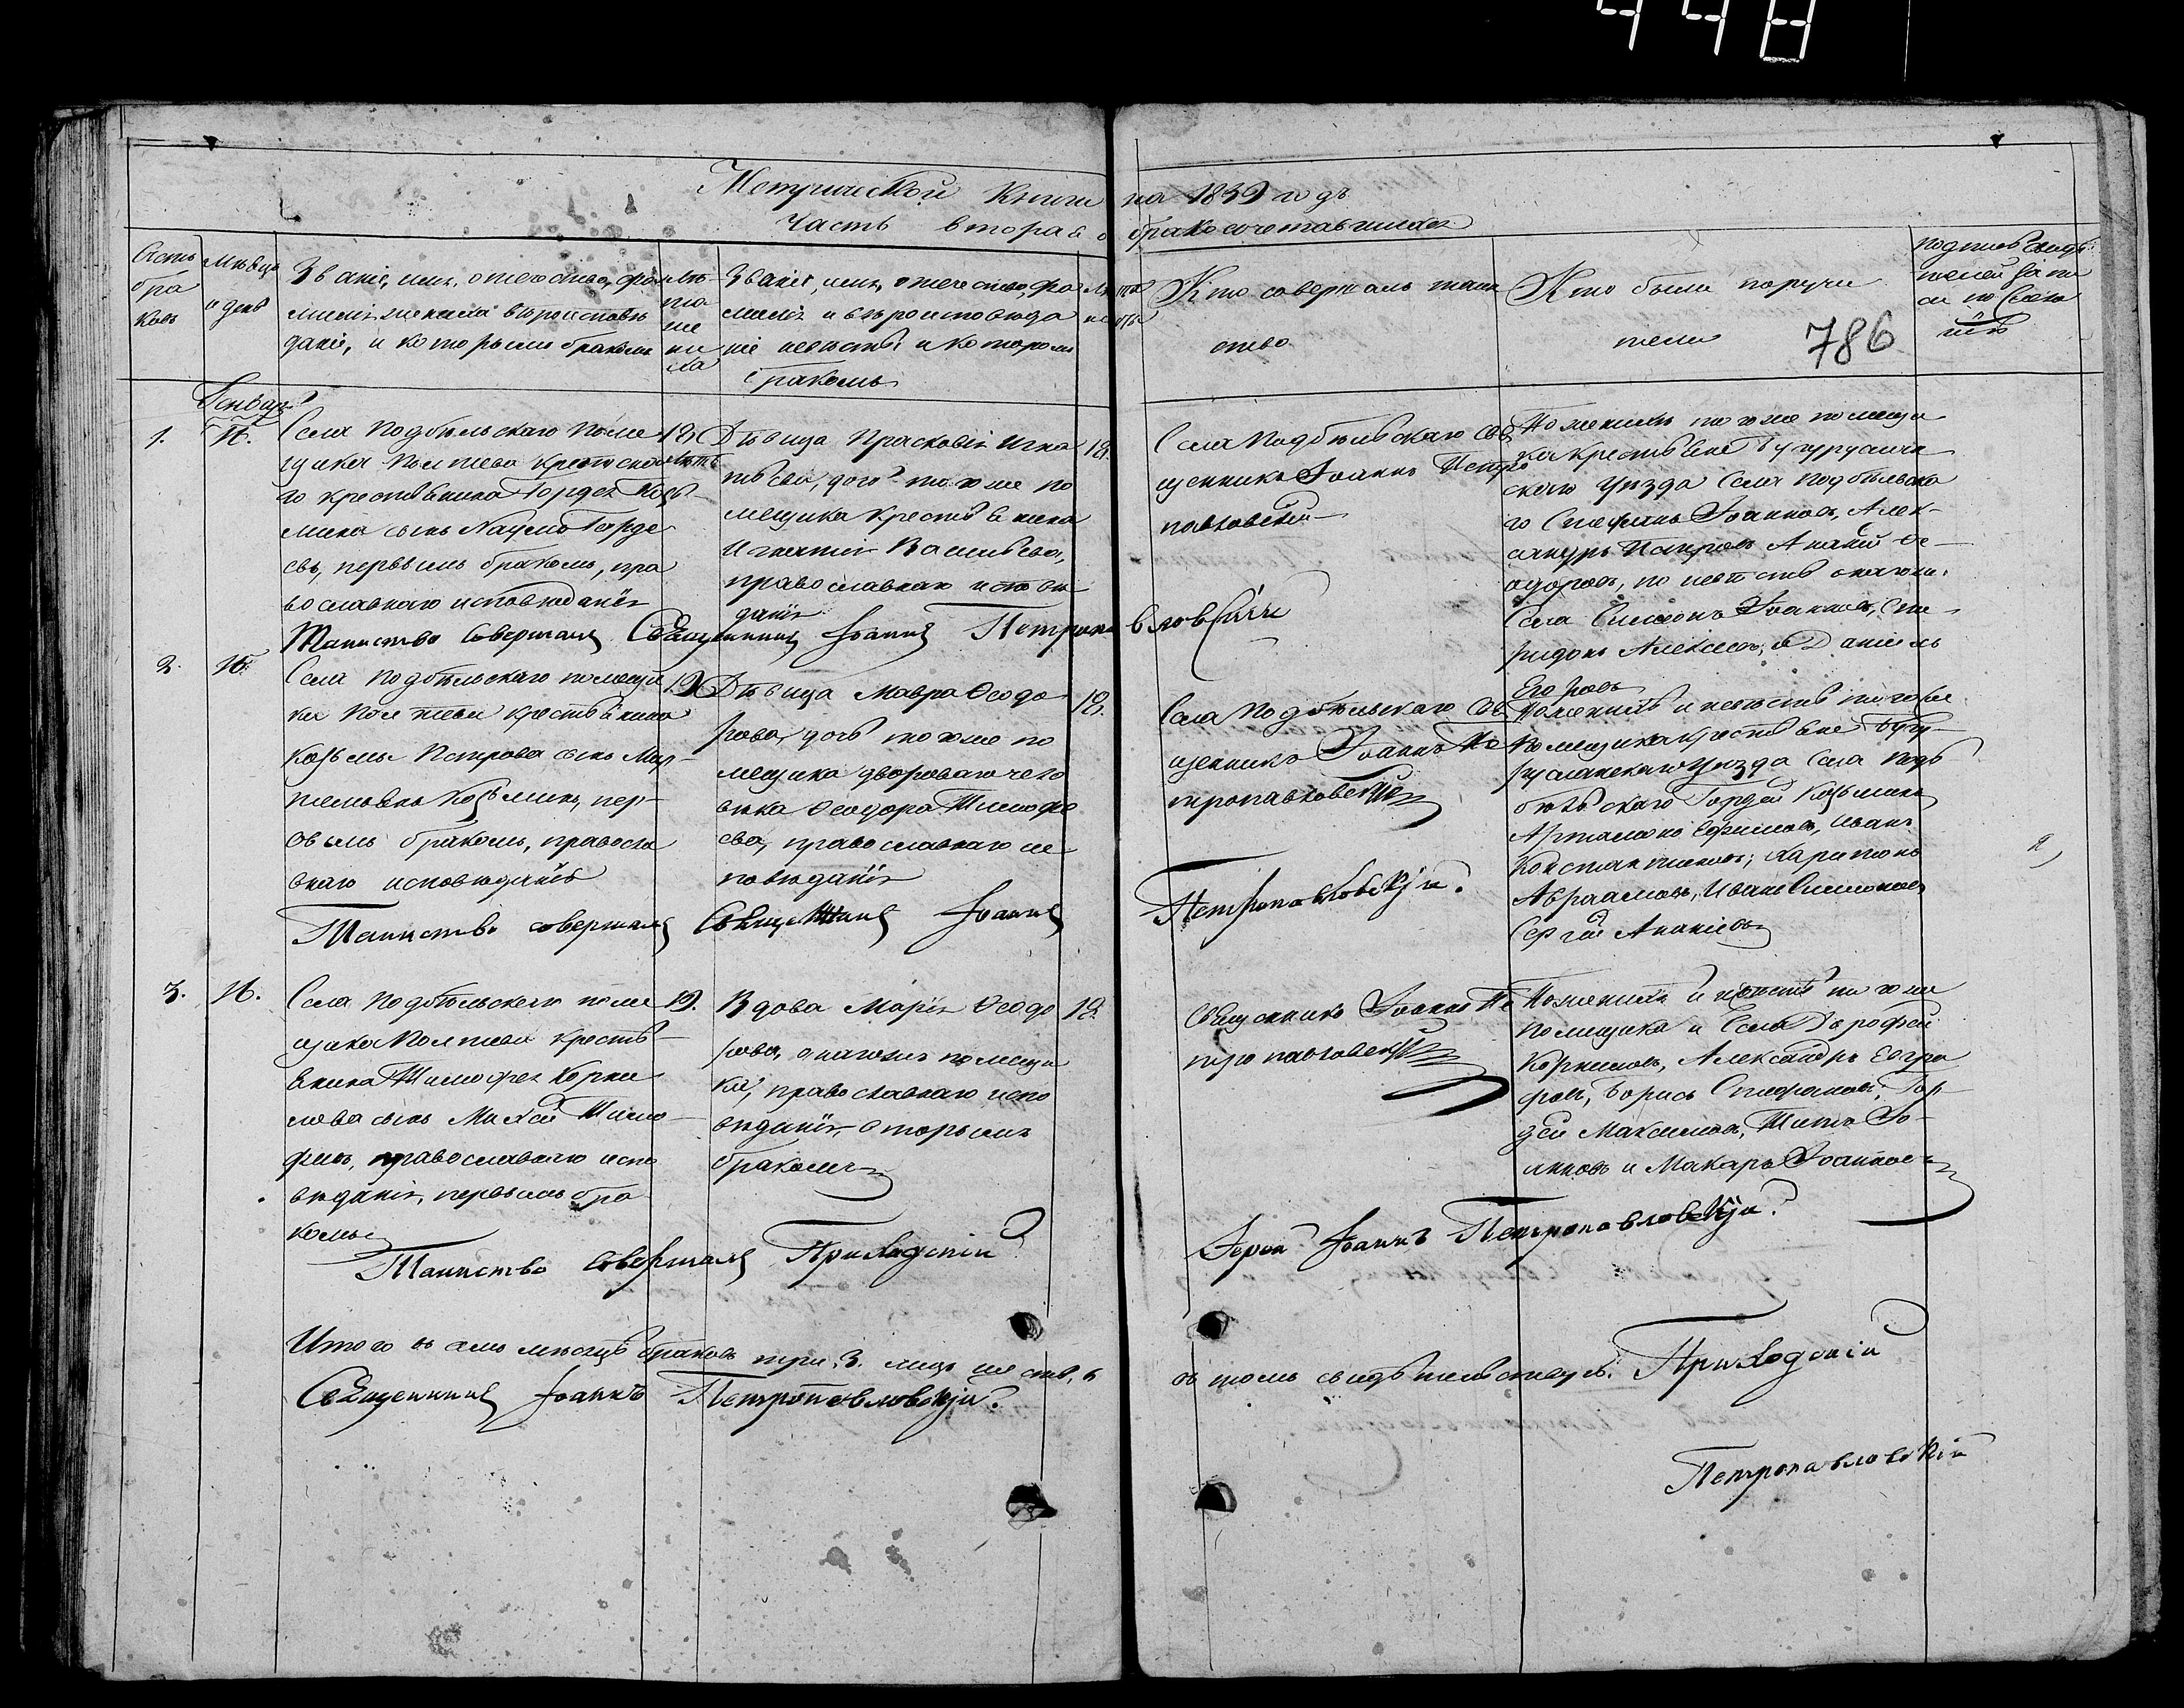 448
Метрической книги на 1839 годъ
Часть вторая о бракосочетавшихся
Счетъ браковъ
Мѣсяцъ и день
Званіе, имя, отечество, фа
милія жениха вѣроисповѣ
даніе, и которымъ бракомъ
лѣ
та
же
ни
ха
Званіе, имя, отечество, фа
милія и вѣроисповѣда
ніе невѣсты и которымъ
бракомъ
лѣта
невѣ
Кто совершалъ таин
ство
Кто были поручи
тели
786
подпись свидѣ
телей запи
си по
Генварь
1.
Села Подбѣльскаго поме
щика Полтева крепостна
го крестьянина Гордея Козь
мина сынъ Наумъ Горде
евъ, первымъ бракомъ, пра
вославнаго исповѣданія
18
лѣтъ
Дѣвица Прасковія Игна
тьева, дочь того же по
мещика крестьянина
Игнатія Васильева,
православнаго исповѣ
данія
18.
Села Подбѣльскаго Свя
щенникъ Іоаннъ Петро
павловскій
По женихѣ того же помещи
ка крестьяне Бугуруслан
скаго Уѣзда Села Подбѣльска
го Стефанъ Іоанновъ, Алек
сандръ Петровъ Ананій Ѳе
одоровъ, по невѣстѣ онагожъ
Села Симеонъ Іоанновъ, Спи
ридонъ Алексеевъ, и Даніилъ
Егоровъ
Таинство совершалъ Священникъ Іоаннъ Петропавловскій
2.
16.
Села Подбѣльскаго помещи
ка Полтева крестьянина
Козьмы Петрова сынъ Мар
темьянъ Козьминъ, пер
вымъ бракомъ, правосла
внаго исповѣданія
19
Дѣвица Мавра Ѳеодо
рова, дочь того же по
мещика двороваго чело
вѣка Ѳеодора Тимофе
ева, православнаго ис
повѣданія
18.
Села Подбѣльскаго Свя
щенникъ Іоаннъ Пе
тропавловскій
По женихѣ и невѣстѣ того же
помещика крестьяне Бугу
русланскаго Уѣзда Села Подъ
бѣльскаго Гордей Козьминъ
Артамонъ Ефимовъ, Иванъ
Константиновъ, Харитонъ
Авраамовъ, Иванъ Симоновъ
Сергей Ананіевъ
Таинство совершалъ Священникъ Іоаннъ Петропавловскій.
3.
16.
Села Подбѣльскаго поме
щика Полтева кресть
янина Тимофея Корни
лова сынъ Михей Тимо
феевъ, православнаго испо
вѣданія, первымъ бра
комъ
19.
Вдова Марія Ѳеодо
рова, онагожъ помещи
ка, православнаго испо
вѣданія, вторымъ
бракомъ
18.
Священникъ Іоаннъ Пе
тропавловскій
По женихѣ и невѣстѣ того же
помещика и Села Дорофей
Корниловъ, Александръ Евгра
фовъ, Борисъ Стефановъ, Гор
дей Максимовъ, Титъ Іо
анновъ и Макаръ Іоанновъ
Таинство совершалъ Приходскій Іерей Іоаннъ Петропавловскій.
Итого въ семъ месяцѣ браковъ три, 3. лицъ шесть, 6 въ томъ свидѣтельствуемъ. Приходскій
Священникъ Іоаннъ Петропавловскій.
Петропавловскій